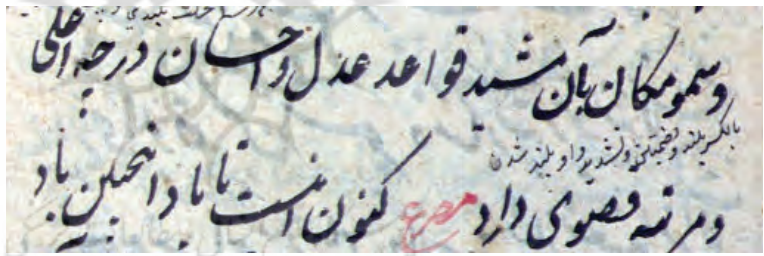 بلندی و
وسمو مکان بآن مشید قواعد عدل و احسان درجه اعلی
بضمتین و تشدید واو بلند شدن
و مرتبه قصوی دارد مصرع کنون اینست تا باد اینچنین باد